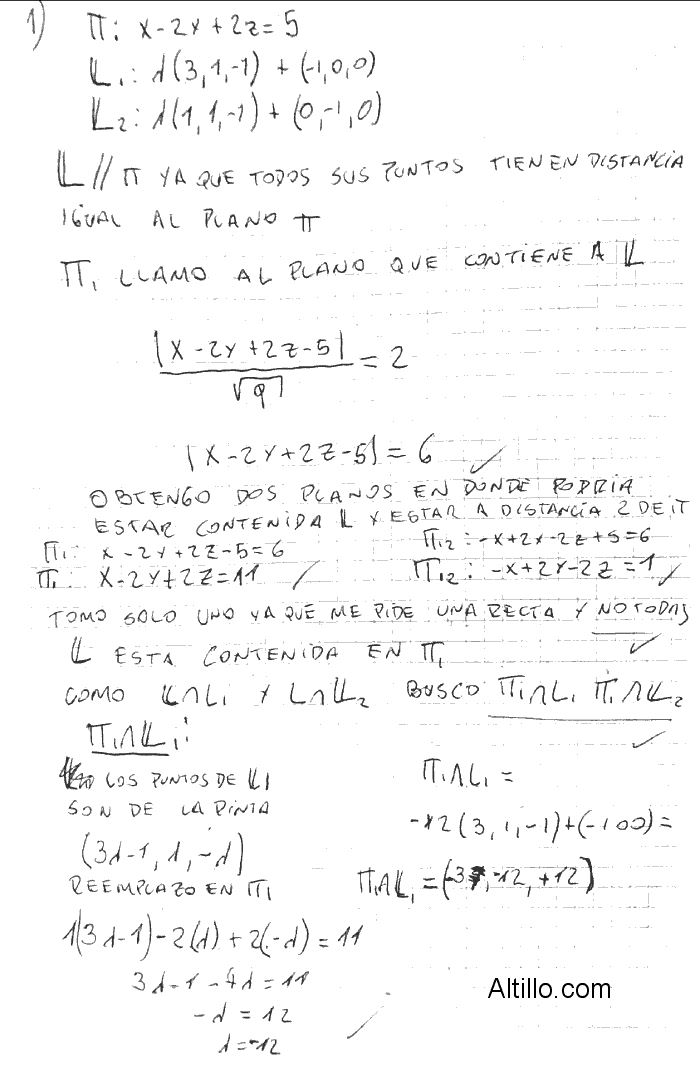 1) Π: x-2y+2z=5
L₁: λ(3,1,-1) + (-1,0,0)
L₂: λ(1,1,-1) + (0,-1,0)
L // Π YA QUE TODOS SUS PUNTOS TIENEN DISTANCIA
IGUAL AL PLANO Π
Π₁ LLAMO AL PLANO QUE CONTIENE A L
|x-2y+2z-5|/√9 = 2
|x-2y+2z-5| = 6 ✓
OBTENGO DOS PLANOS EN DONDE PODRIA
ESTAR CONTENIDA L Y ESTAR A DISTANCIA 2 DE Π
Π₁: x-2y+2z-5=6
Π₁₂: -x+2y-2z+5=6
Π₁: x-2y+2z=11
Π₁₂: -x+2y-2z=1
TOMO SOLO UNO YA QUE ME PIDE UNA RECTA Y NO TODAS
L ESTA CONTENIDA EN Π₁ ✓
COMO L∩L₁ Y L∩L₂ BUSCO Π₁∩L₁ Π₁∩L₂ ✓
Π₁∩L₁:
LOS PUNTOS DE L₁
SON DE LA PINTA
(3λ-1, λ, -λ)
REEMPLAZO EN Π₁
1(3λ-1)-2(λ)+2(-λ)=11
3λ-1-4λ=11
-λ=12
λ=-12
Π₁∩L₁ =
-12(3,1,-1)+(-1 0 0)=
Π₁∩L₁=(-37,-12,+12)
Altillo.com